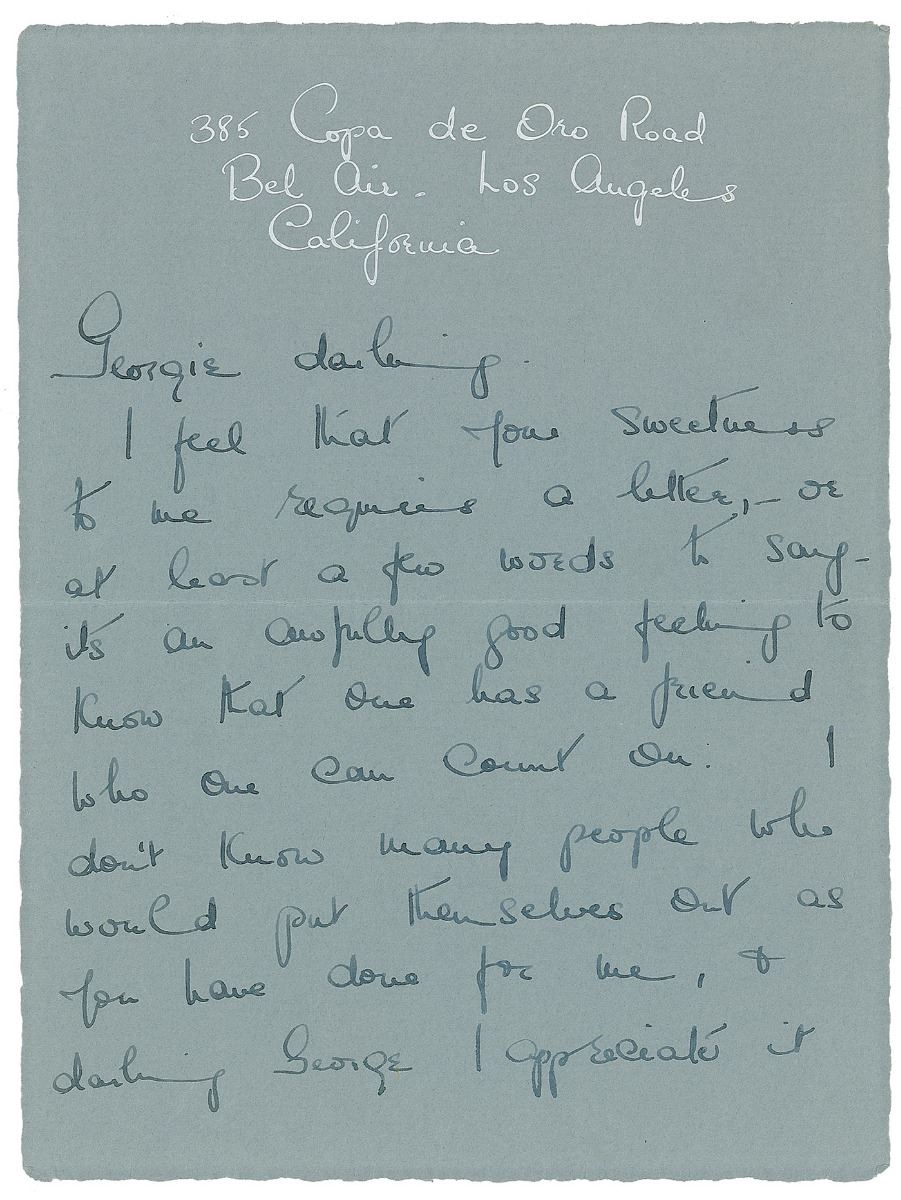 385 Copa de Oro Road
Bel Air. Los Angeles
California
Georgie darling.
I feel that your sweetness
to me requires a letter, – or
at least a few words to say –
it's an awfully good feeling to
know that one has a friend
who one can count on. I
don't know many people who
would put themselves out as
you have done for me, &
darling George I appreciate it